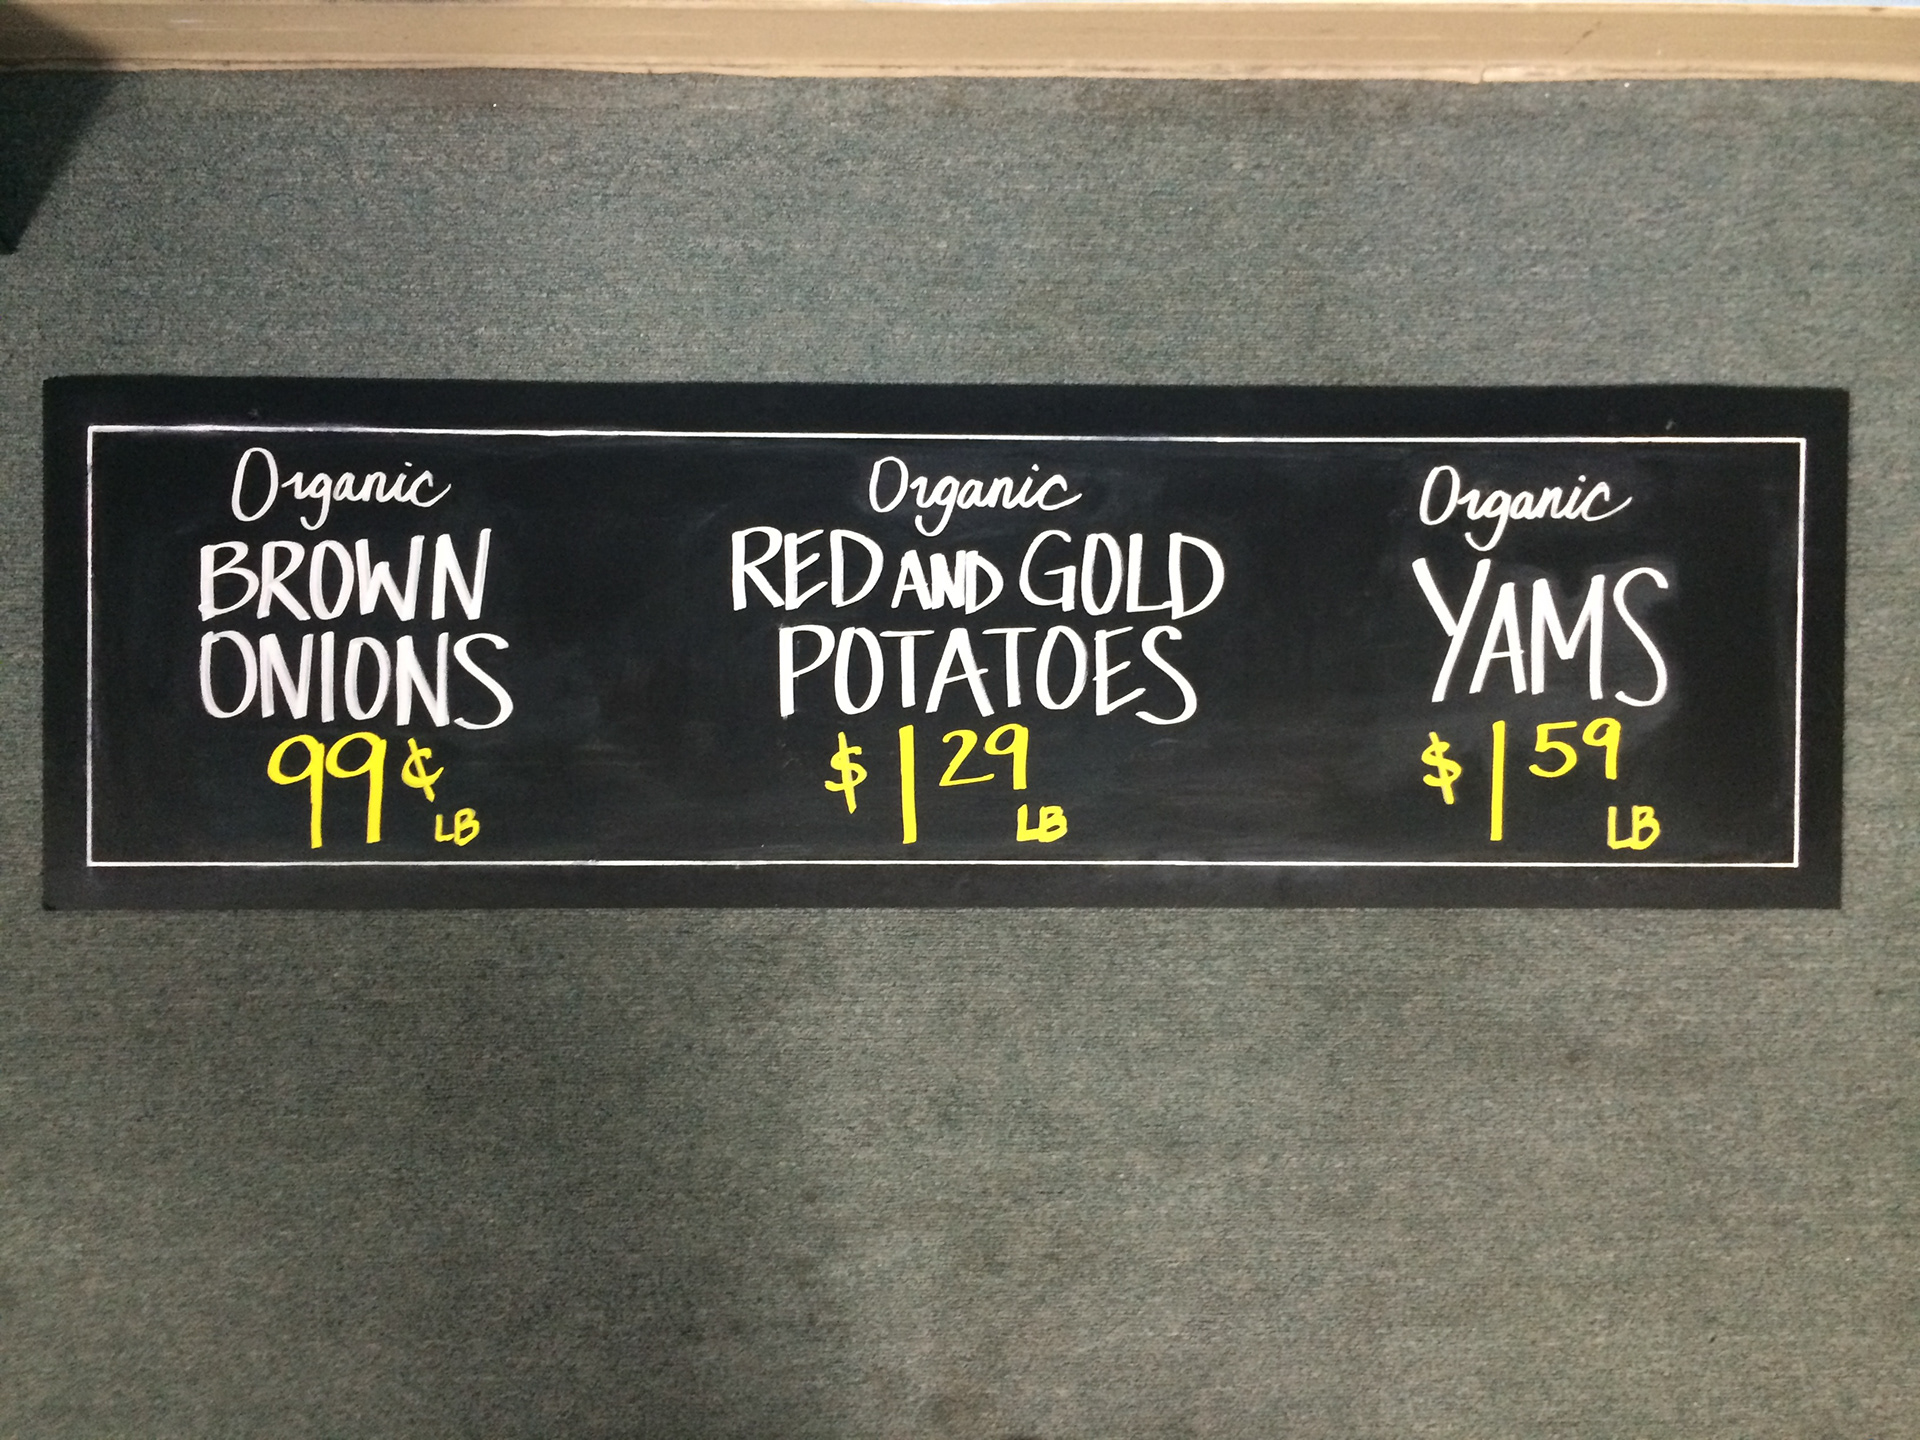 Organic
BROWN
ONIONS
99¢
LB
Organic
RED AND GOLD
POTATOES
$1 29
LB
Organic
YAMS
$1 59
LB